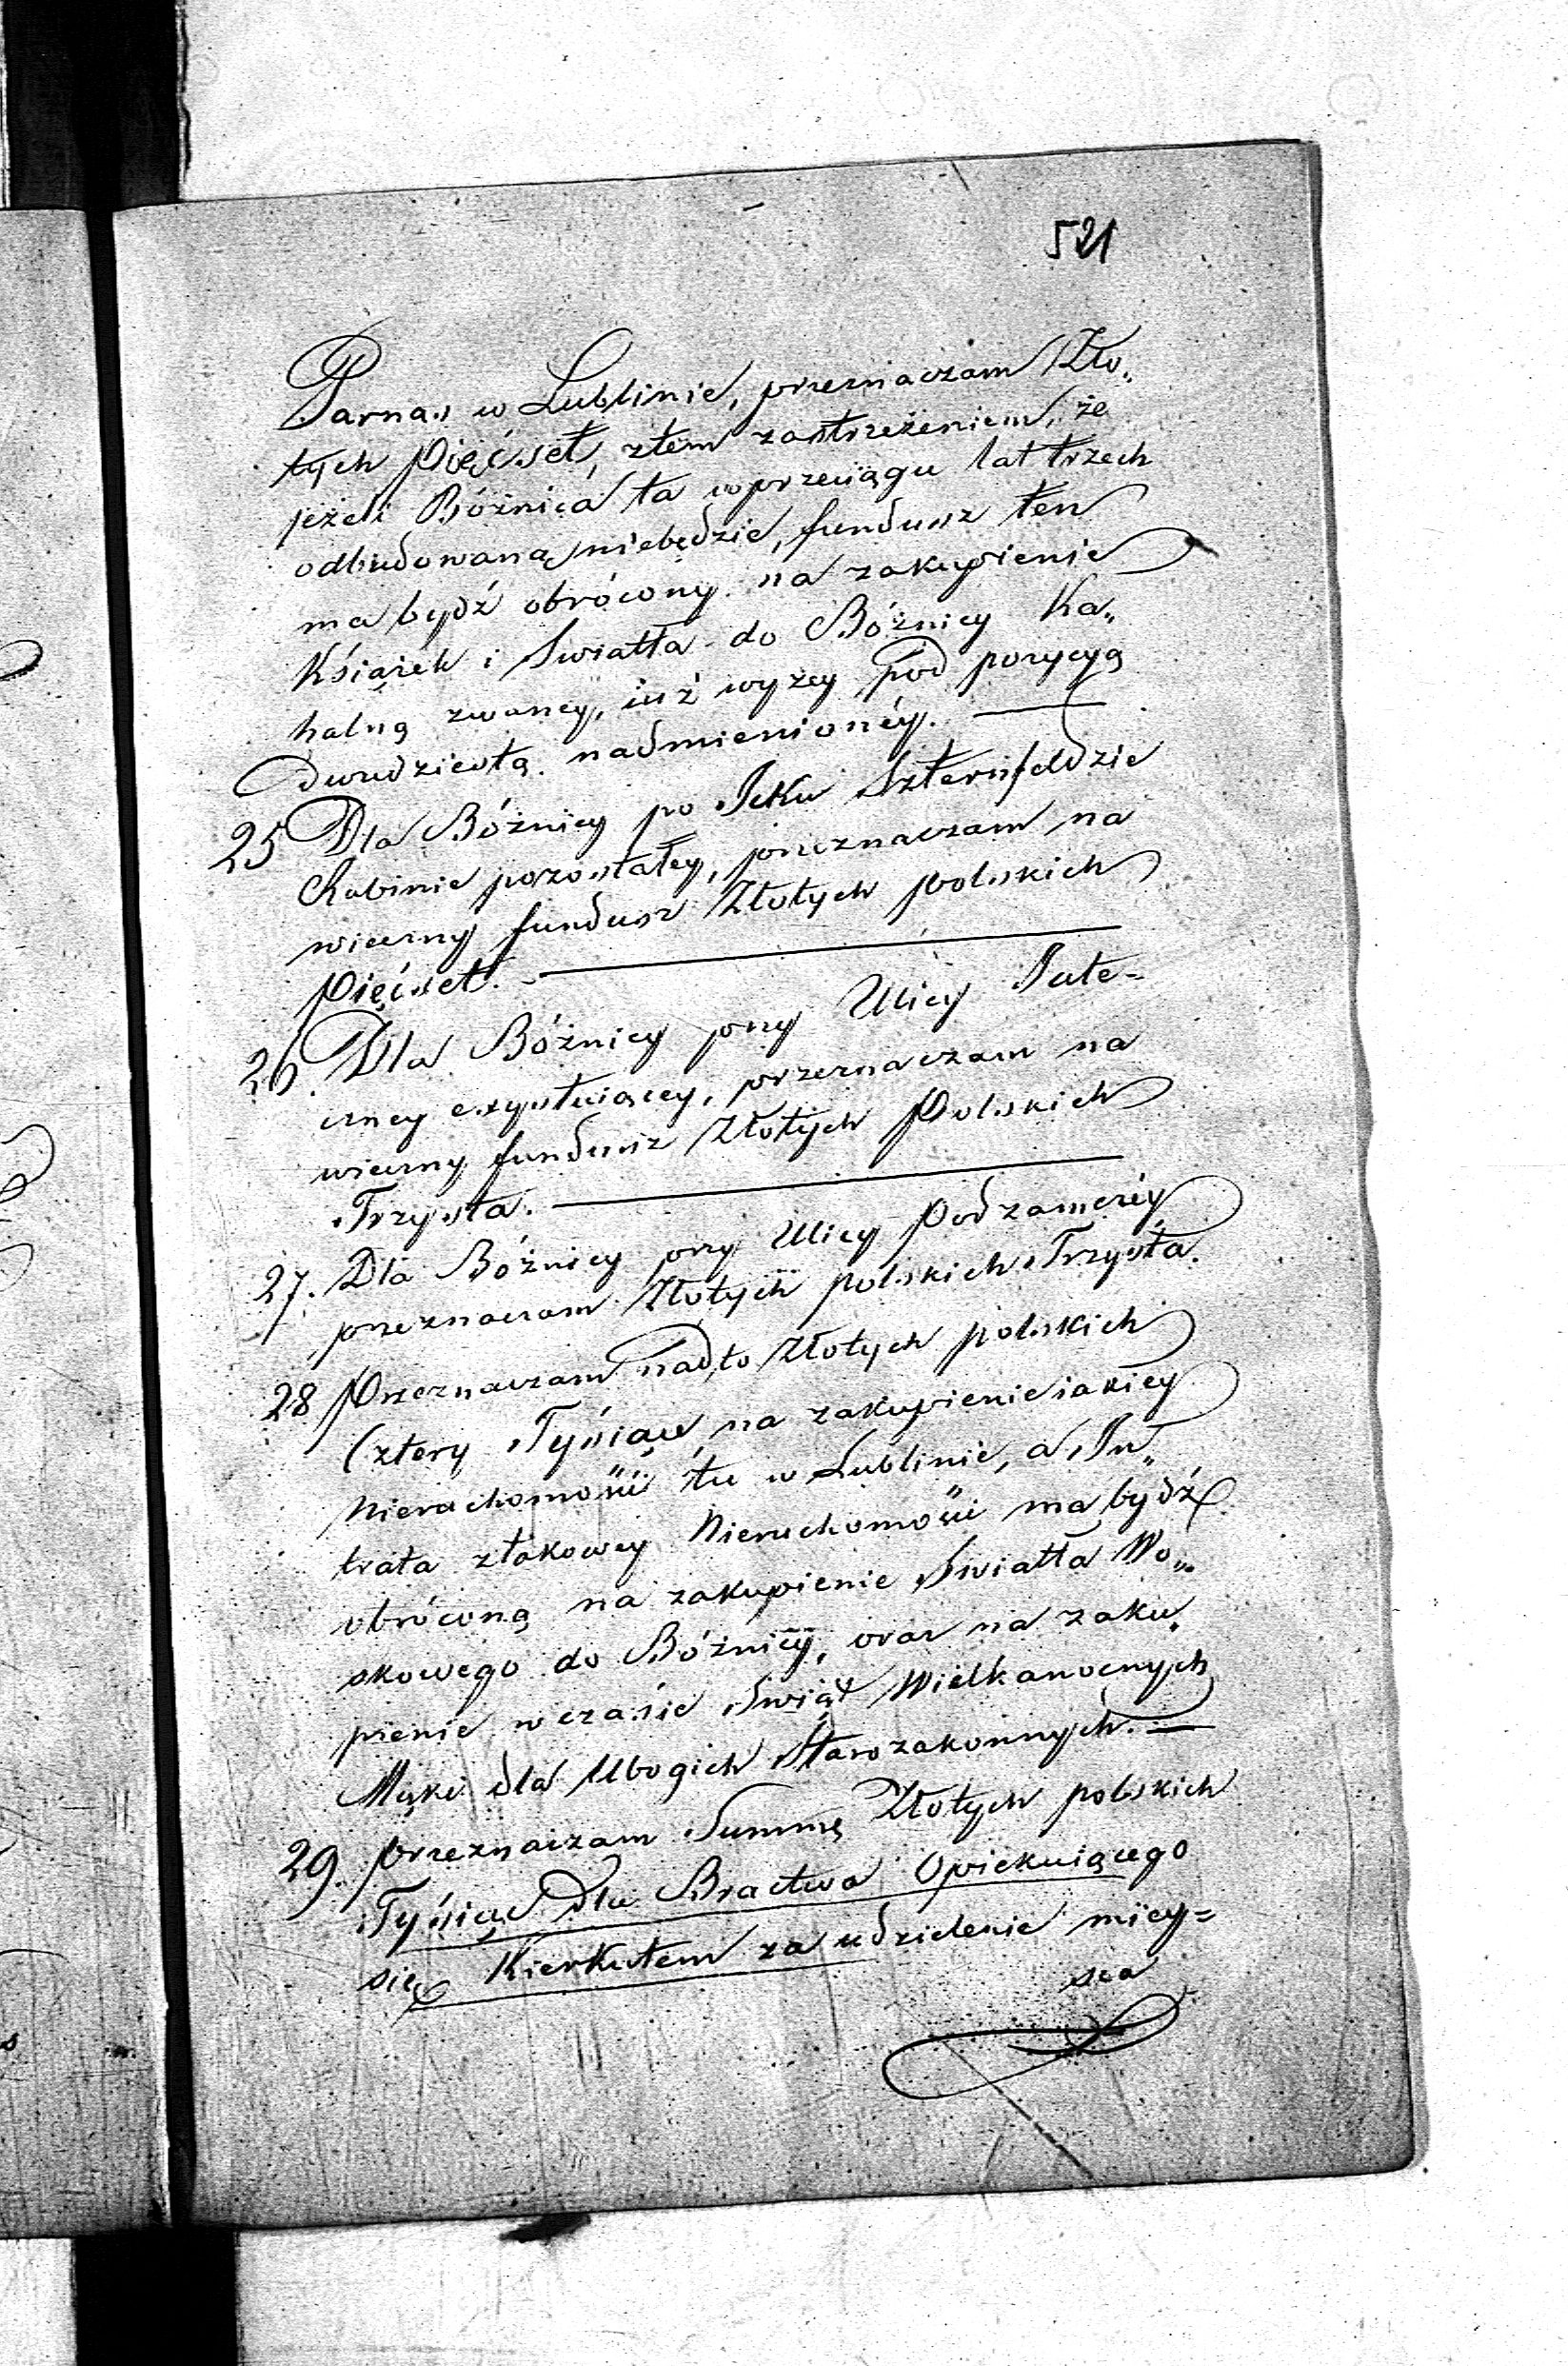 521
Parnas w Lublinie, przeznaczam Zło„
tych Pięćset, ztem zastrzeżeniem, że
jeżeli Bóżnica ta wprzeciągu lat trzech
odbudowaną niebędzie, fundusz ten
ma bydź obrócony na zakupienie
Książek i Swiatła do Bóżnicy Ka„
halną zwaney, iuż wyżey pod pozycyą
dwudziestą nadmienionéy. —
25 Dla Bóżnicy po Icku Szternfeldzie
Rabinie pozostałey, przeznaczam na
wieczny fundusz Złotych polskich
Pięćset. —
26. Dla Bóżnicy przy Ulicy Jate=
czney exystuiącey, przeznaczam na
wieczny fundusz Złotych Polskich
Trzysta. —
27. Dla Bóżnicy przy Ulicy Podzamczéy
przeznaczam Złotych polskich Trzysta.
28 Przeznaczam nadto Złotych polskich
Cztery Tysiące na zakupienie iakiey
Nieruchomości tu w Lublinie, a In„
trata ztakowey Nieruchomości ma bydź
obróconą na zakupienie Swiatła Wo„
skowego do Bóżnicy, oraz na zaku„
pienie w czasie Swiąt Wielkanocnych
Mąki dla Ubogich Starozakonnych. —
29. przeznaczam Summę Złotych polskich
Tysiąc Dla Bractwa Opiekuiącego
się Kierkutem za udzielenie miey=
sca